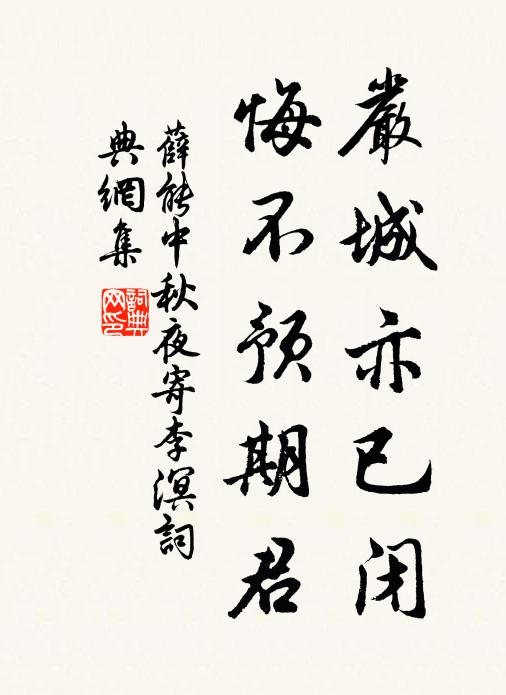 嚴城亦已闭
悔不预期君
薛能中秋夜寄李溟詞
典網集
詞典
网印